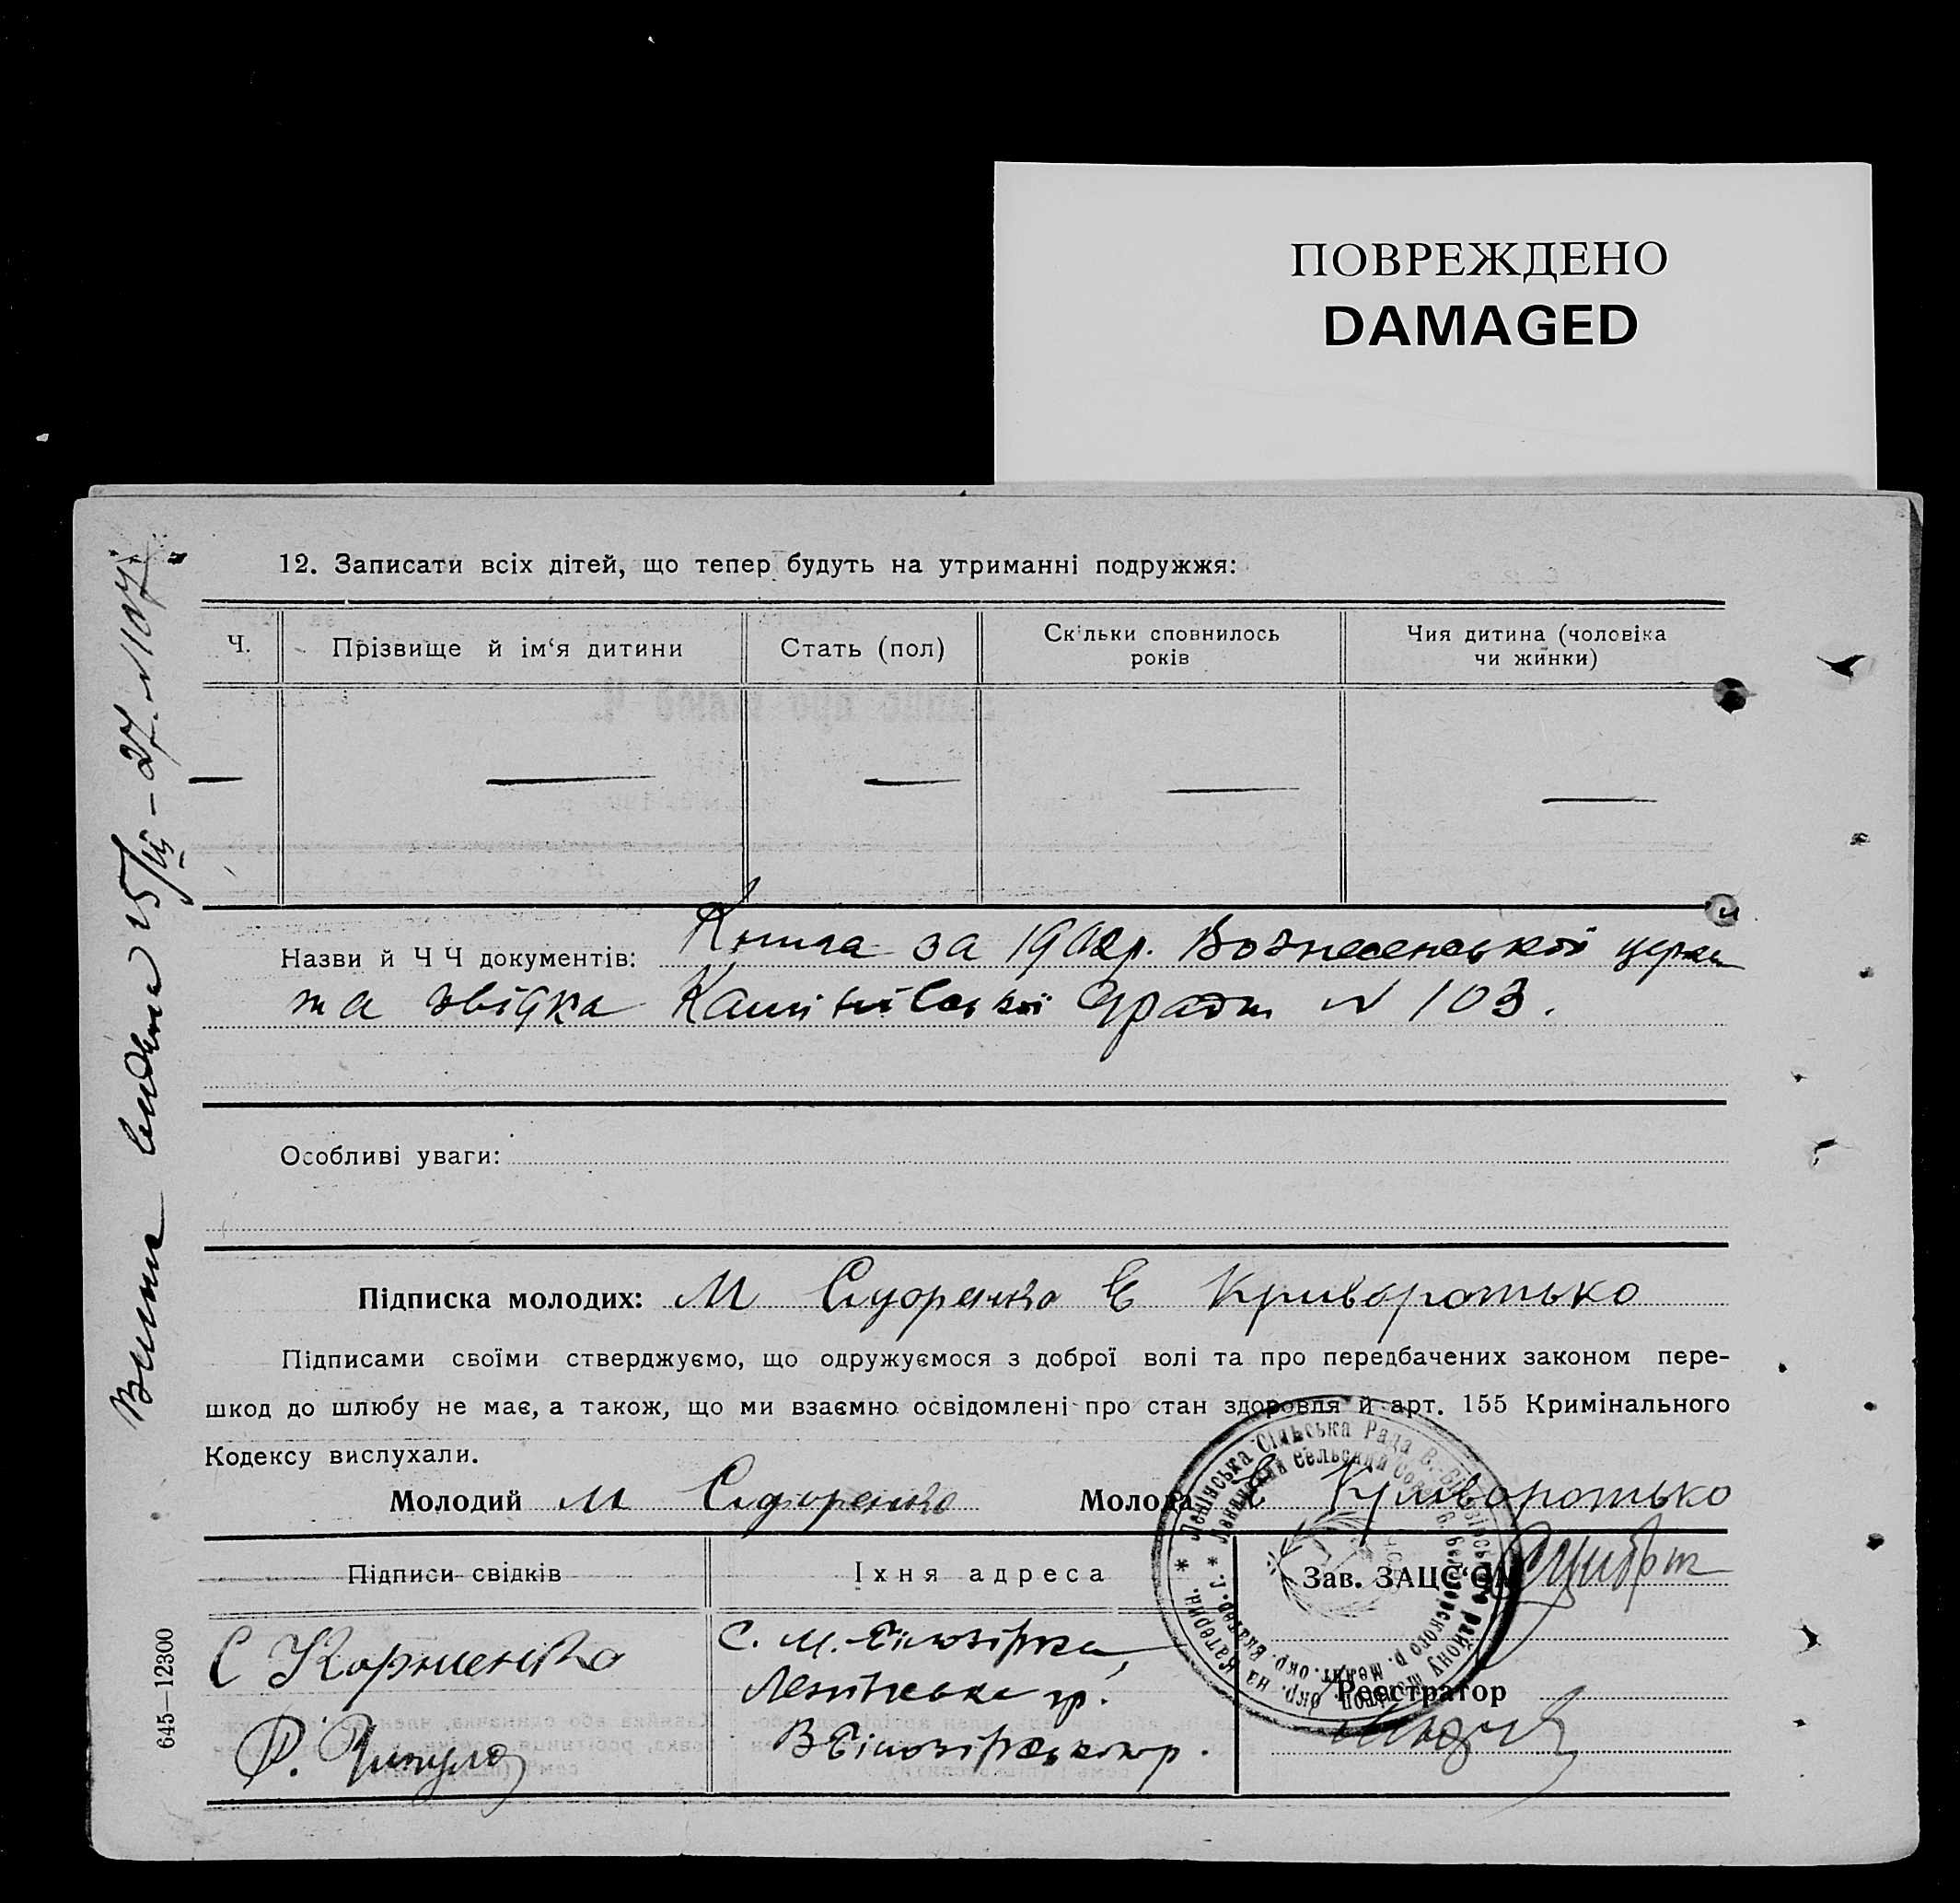 ПОВРЕЖДЕНО
DAMAGED
12. Записати всіх дітей, що тепер будуть на утриманні подружжя:
Ч.
Прізвище й ім‘я дитини
Стать (пол)
Скільки сповнилось
років
Чия дитина (чоловіка
чи жинки)
— — — — —
Назви й Ч Ч документів: Книга за 1902р. Вознесенської церкви
та звідка ради № 103.
Особливі уваги:
Підписка молодих: М Сидоренко Є Криворотько
Підписами своїми стверджуємо, що одружуємося з доброї волі та про передбачених законом пере-
шкод до шлюбу не має, а також, що ми взаємно освідомлені про стан здоровля й арт. 155 Кримінального
Кодексу вислухали.
Молодий М Сидоренко Молода Є Криворотько
Підписи свідків
Їхня адреса
Зав. ЗАЦС‘ОМ
С Корниенко
С. М.-Білозірка,
Ленінська
В Білозірськ
Реєстратор
Ленінська Сільська Рада В.-Білозірського району
Ленинский Сельский Совет
Випис видана 15/III – 27. №
645—12300